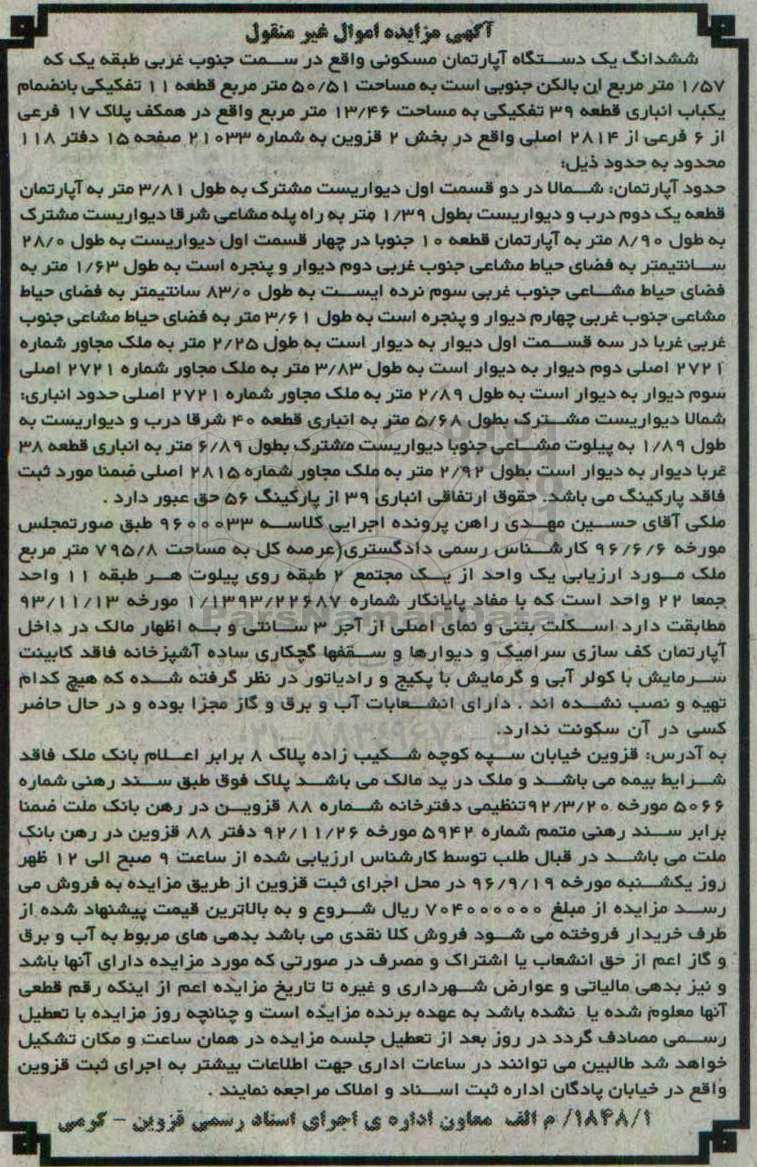 آگهی مزایده اموال غیر منقول
ششدانگ یک دستگاه آپارتمان مسکونی واقع در سمت جنوب غربی طبقه یک که
۱/۵۷ متر مربع ان بالکن جنوبی است به مساحت ۵۰/۵۱ متر مربع قطعه ۱۱ تفکیکی بانضمام
یکباب انباری قطعه ۳۹ تفکیکی به مساحت ۱۳/۴۶ متر مربع واقع در همکف پلاک ۱۷ فرعی
از ۶ فرعی از ۲۸۱۴ اصلی واقع در بخش ۲ قزوین به شماره ۲۱۰۳۳ صفحه ۱۵ دفتر ۱۱۸
محدود به حدود ذیل:
حدود آپارتمان: شمالا در دو قسمت اول دیواریست مشترک به طول ۳/۸۱ متر به آپارتمان
قطعه یک دوم درب و دیواریست بطول ۱/۳۹ متر به راه پله مشاعی شرقا دیواریست مشترک
به طول ۸/۹۰ متر به آپارتمان قطعه ۱۰ جنوبا در چهار قسمت اول دیواریست به طول ۲۸/۰
سانتیمتر به فضای حیاط مشاعی جنوب غربی دوم دیوار و پنجره است به طول ۱/۶۳ متر به
فضای حیاط مشاعی جنوب غربی سوم نرده ایست به طول ۸۳/۰ سانتیمتر به فضای حیاط
مشاعی جنوب غربی چهارم دیوار و پنجره است به طول ۳/۶۱ متر به فضای حیاط مشاعی جنوب
غربی غربا در سه قسمت اول دیوار به دیوار است به طول ۲/۲۵ متر به ملک مجاور شماره
۲۷۲۱ اصلی دوم دیوار به دیوار است به طول ۳/۸۳ متر به ملک مجاور شماره ۲۷۲۱ اصلی
سوم دیوار به دیوار است به طول ۲/۸۹ متر به ملک مجاور شماره ۲۷۲۱ اصلی حدود انباری:
شمالا دیواریست مشترک بطول ۵/۶۸ متر به انباری قطعه ۴۰ شرقا درب و دیواریست به
طول ۱/۸۹ به پیلوت مشاعی جنوبا دیواریست مشترک بطول ۶/۸۹ متر به انباری قطعه ۳۸
غربا دیوار به دیوار است بطول ۲/۹۲ متر به ملک مجاور شماره ۲۸۱۵ اصلی ضمنا مورد ثبت
فاقد پارکینگ می باشد. حقوق ارتفاقی انباری ۳۹ از پارکینگ ۵۶ حق عبور دارد .
ملکی آقای حسین مهدی راهن پرونده اجرایی کلاسه ۹۶۰۰۰۳۳ طبق صورتمجلس
مورخه ۹۶/۶/۶ کارشناس رسمی دادگستری(عرصه کل به مساحت ۷۹۵/۸ متر مربع
ملک مورد ارزیابی یک واحد از یک مجتمع ۲ طبقه روی پیلوت هر طبقه ۱۱ واحد
جمعا ۲۲ واحد است که با مفاد پایانکار شماره ۱/۱۳۹۳/۲۲۶۸۷ مورخه ۹۳/۱۱/۱۳
مطابقت دارد اسکلت بتنی و نمای اصلی از آجر ۳ سانتی و به اظهار مالک در داخل
آپارتمان کف سازی سرامیک و دیوارها و سقفها گچکاری ساده آشپزخانه فاقد کابینت
سرمایش با کولر آبی و گرمایش با پکیج و رادیاتور در نظر گرفته شده که هیچ کدام
تهیه و نصب نشده اند . دارای انشعابات آب و برق و گاز مجزا بوده و در حال حاضر
کسی در آن سکونت ندارد.
به آدرس: قزوین خیابان سپه کوچه شکیب زاده پلاک ۸ برابر اعلام بانک ملک فاقد
شرایط بیمه می باشد و ملک در ید مالک می باشد پلاک فوق طبق سند رهنی شماره
۵۰۶۶ مورخه ۹۲/۳/۲۰تنظیمی دفترخانه شماره ۸۸ قزوین در رهن بانک ملت ضمنا
برابر سند رهنی متمم شماره ۵۹۴۲ مورخه ۹۲/۱۱/۲۶ دفتر ۸۸ قزوین در رهن بانک
ملت می باشد در قبال طلب توسط کارشناس ارزیابی شده از ساعت ۹ صبح الی ۱۲ ظهر
روز یکشنبه مورخه ۹۶/۹/۱۹ در محل اجرای ثبت قزوین از طریق مزایده به فروش می
رسد مزایده از مبلغ ۷۰۴۰۰۰۰۰۰ ریال شروع و به بالاترین قیمت پیشنهاد شده از
طرف خریدار فروخته می شود فروش کلا نقدی می باشد بدهی های مربوط به آب و برق
و گاز اعم از حق انشعاب یا اشتراک و مصرف در صورتی که مورد مزایده دارای آنها باشد
و نیز بدهی مالیاتی و عوارض شهرداری و غیره تا تاریخ مزایده اعم از اینکه رقم قطعی
آنها معلوم شده یا نشده باشد به عهده برنده مزایده است و چنانچه روز مزایده با تعطیل
رسمی مصادف گردد در روز بعد از تعطیل جلسه مزایده در همان ساعت و مکان تشکیل
خواهد شد طالبین می توانند در ساعات اداری جهت اطلاعات بیشتر به اجرای ثبت قزوین
واقع در خیابان پادگان اداره ثبت اسناد و املاک مراجعه نمایند .
۱۸۴۸/۱/ م الف معاون اداره ی اجرای اسناد رسمی قزوین - کرمی